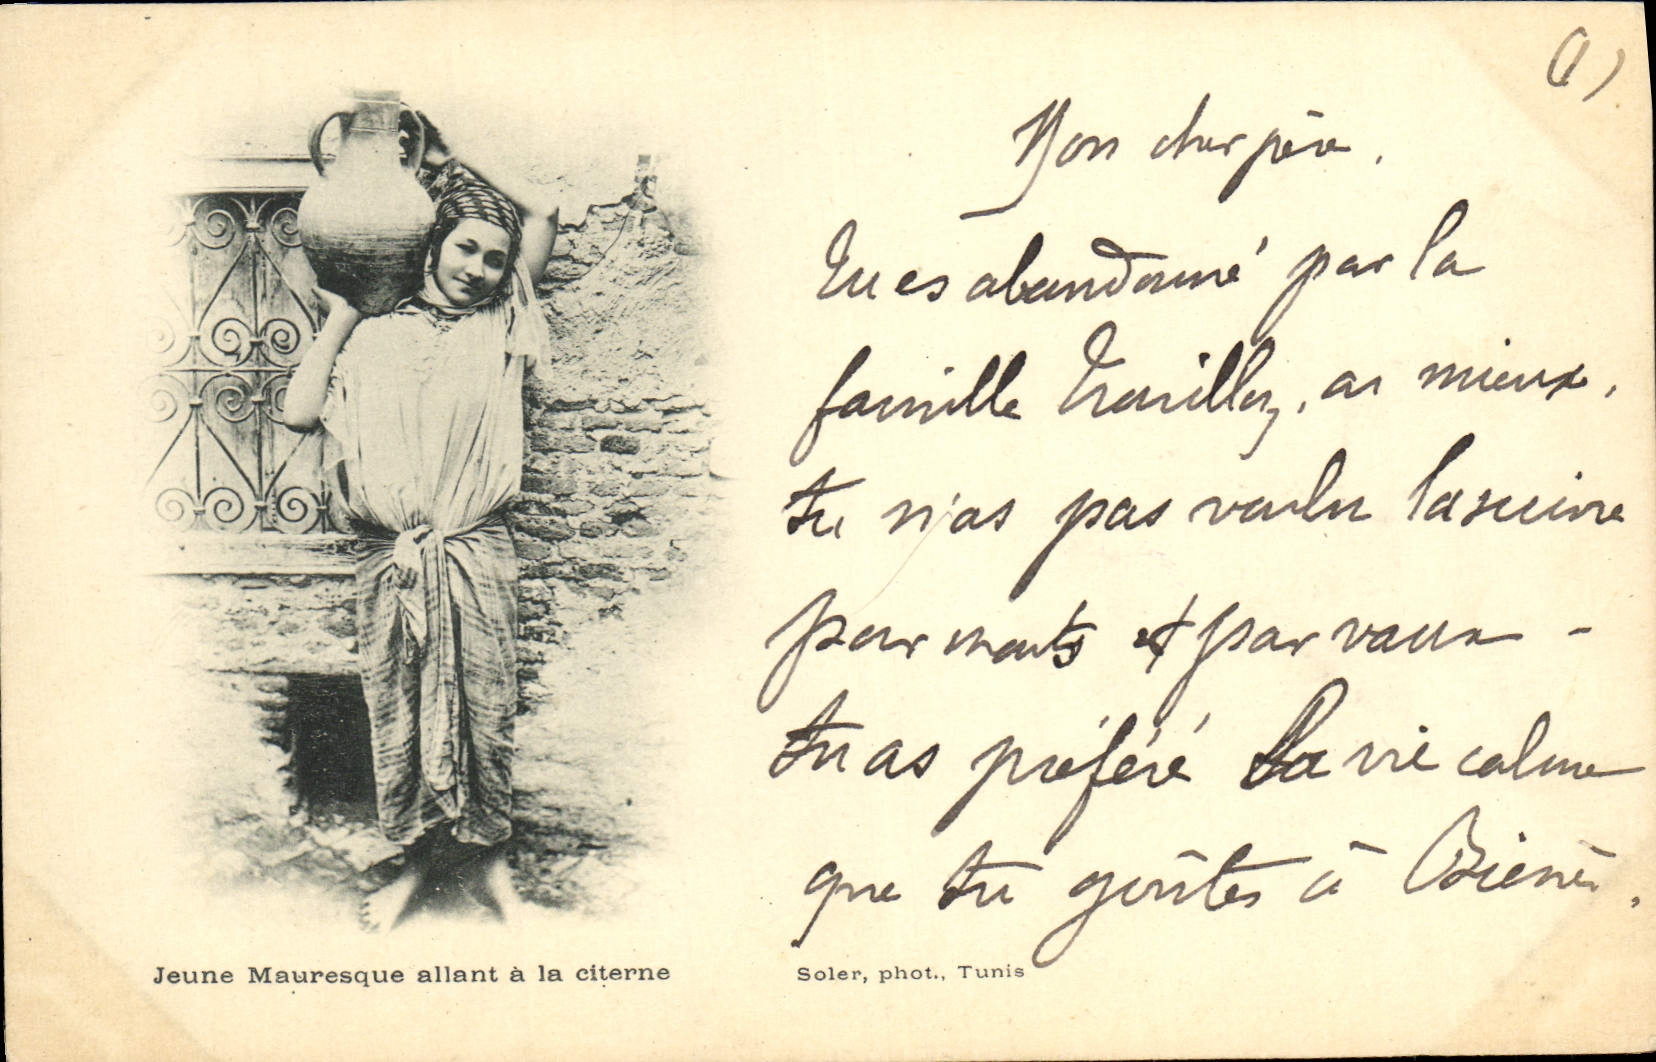 (1)
Mon cher père,
Tu es abandonné par la
famille Travilley, ou mieux,
tu n'as pas voulu la suivre
par monts et par vaux -
tu as préféré la vie calme
que tu goûtes à
Jeune Mauresque allant à la citerne
Soler, phot., Tunis